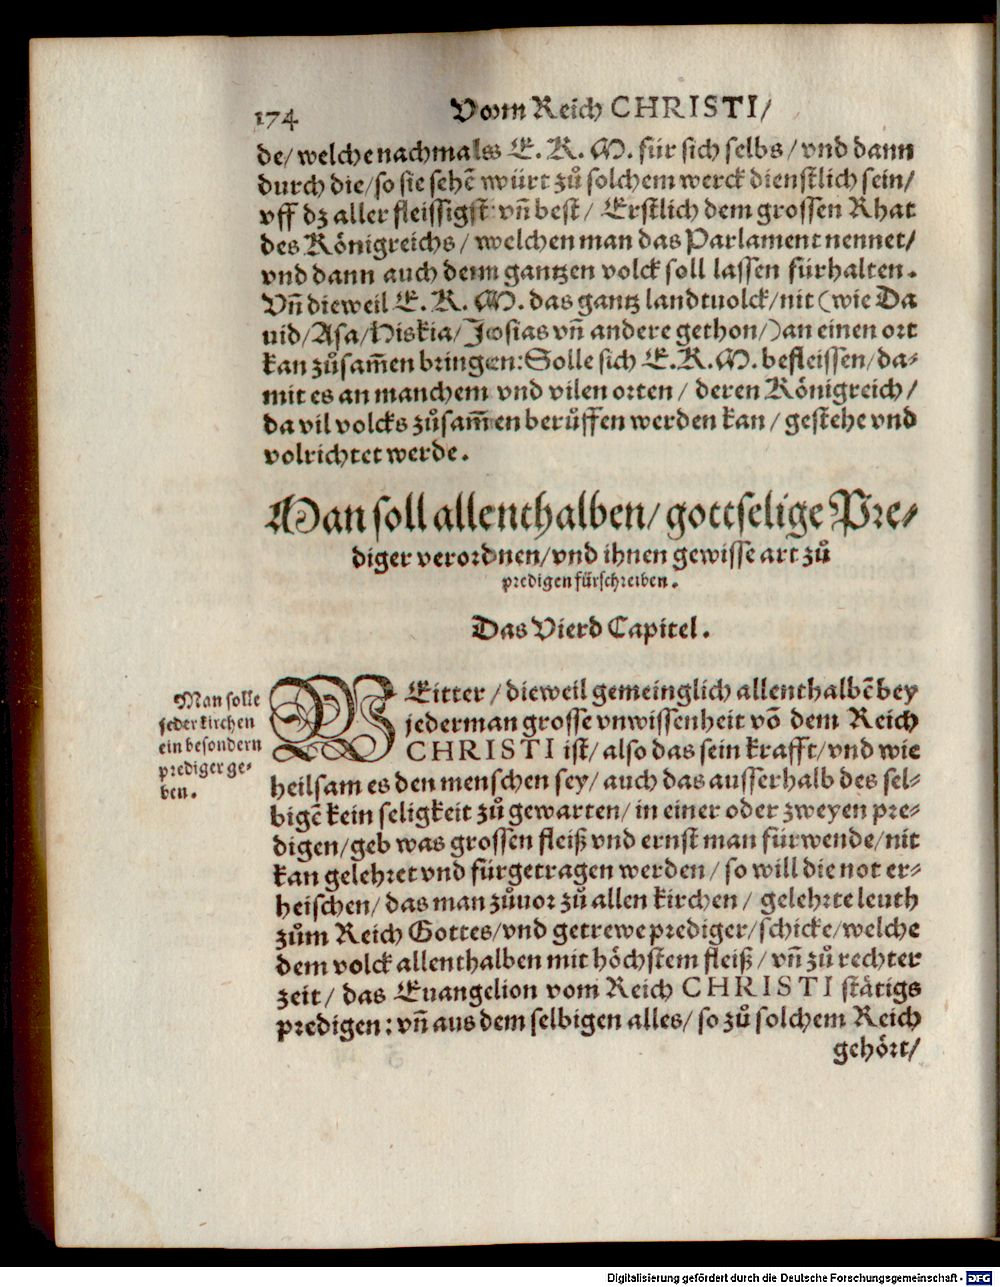 174 Vom Reich CHRISTI/
de/ welche nachmals E. K. M. für sich selbs/ vnd dann
durch die/ so sie sehē würt zů solchem werck dienstlich sein/
vff dz aller fleissigst vñ best/ Erstlich dem grossen Rhat
des Königreichs/ welchen man das Parlament nennet/
vnd dann auch dem gantzen volck soll lassen fürhalten.
Vñ dieweil E. K. M. das gantz landtuolck/ nit (wie Da
uid/ Asa/ Hiskia/ Josias vñ andere gethon/) an einen ort
kan zůsam̃en bringen: Solle sich E. K. M. befleissen/ da-
mit es an manchem vnd vilen orten/ deren Königreich/
da vil volcks zůsam̃en berůffen werden kan/ gestehe vnd
volrichtet werde.
Man soll allenthalben/ gottselige Pre-
diger verordnen/ vnd ihnen gewisse art zů
predigen fürschreiben.
Das Vierd Capitel.
Man solle
jeder kirchen
ein besondern
prediger ge-
ben.
WEitter/ dieweil gemeinglich allenthalbē bey
jederman grosse vnwissenheit vō dem Reich
CHRISTI ist/ also das sein krafft/ vnd wie
heilsam es den menschen sey/ auch das ausserhalb des sel-
bigē kein seligkeit zů gewarten/ in einer oder zweyen pre-
digen/ geb was grossen fleiß vnd ernst man fürwende/ nit
kan gelehret vnd fürgetragen werden/ so will die not er-
heischen/ das man zůuor zů allen kirchen/ gelehrte leuth
zům Reich Gottes/ vnd getrewe prediger/ schicke/ welche
dem volck allenthalben mit höchstem fleiß/ vñ zů rechter
zeit/ das Euangelion vom Reich CHRISTI stätigs
predigen: vñ aus dem selbigen alles/ so zů solchem Reich
gehört/
Digitalisierung gefördert durch die Deutsche Forschungsgemeinschaft - DFG